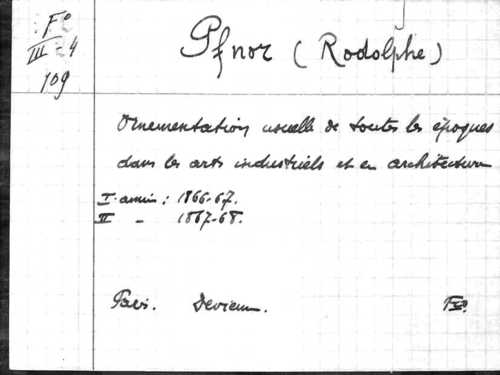 Fº
III-4
109
Pfnor (Rodolphe)
Ornementation usuelle de toutes les époques
dans les arts industriels et en architecture
I année : 1866-67.
II - 1867-68.
Paris. Devienne. Fº.